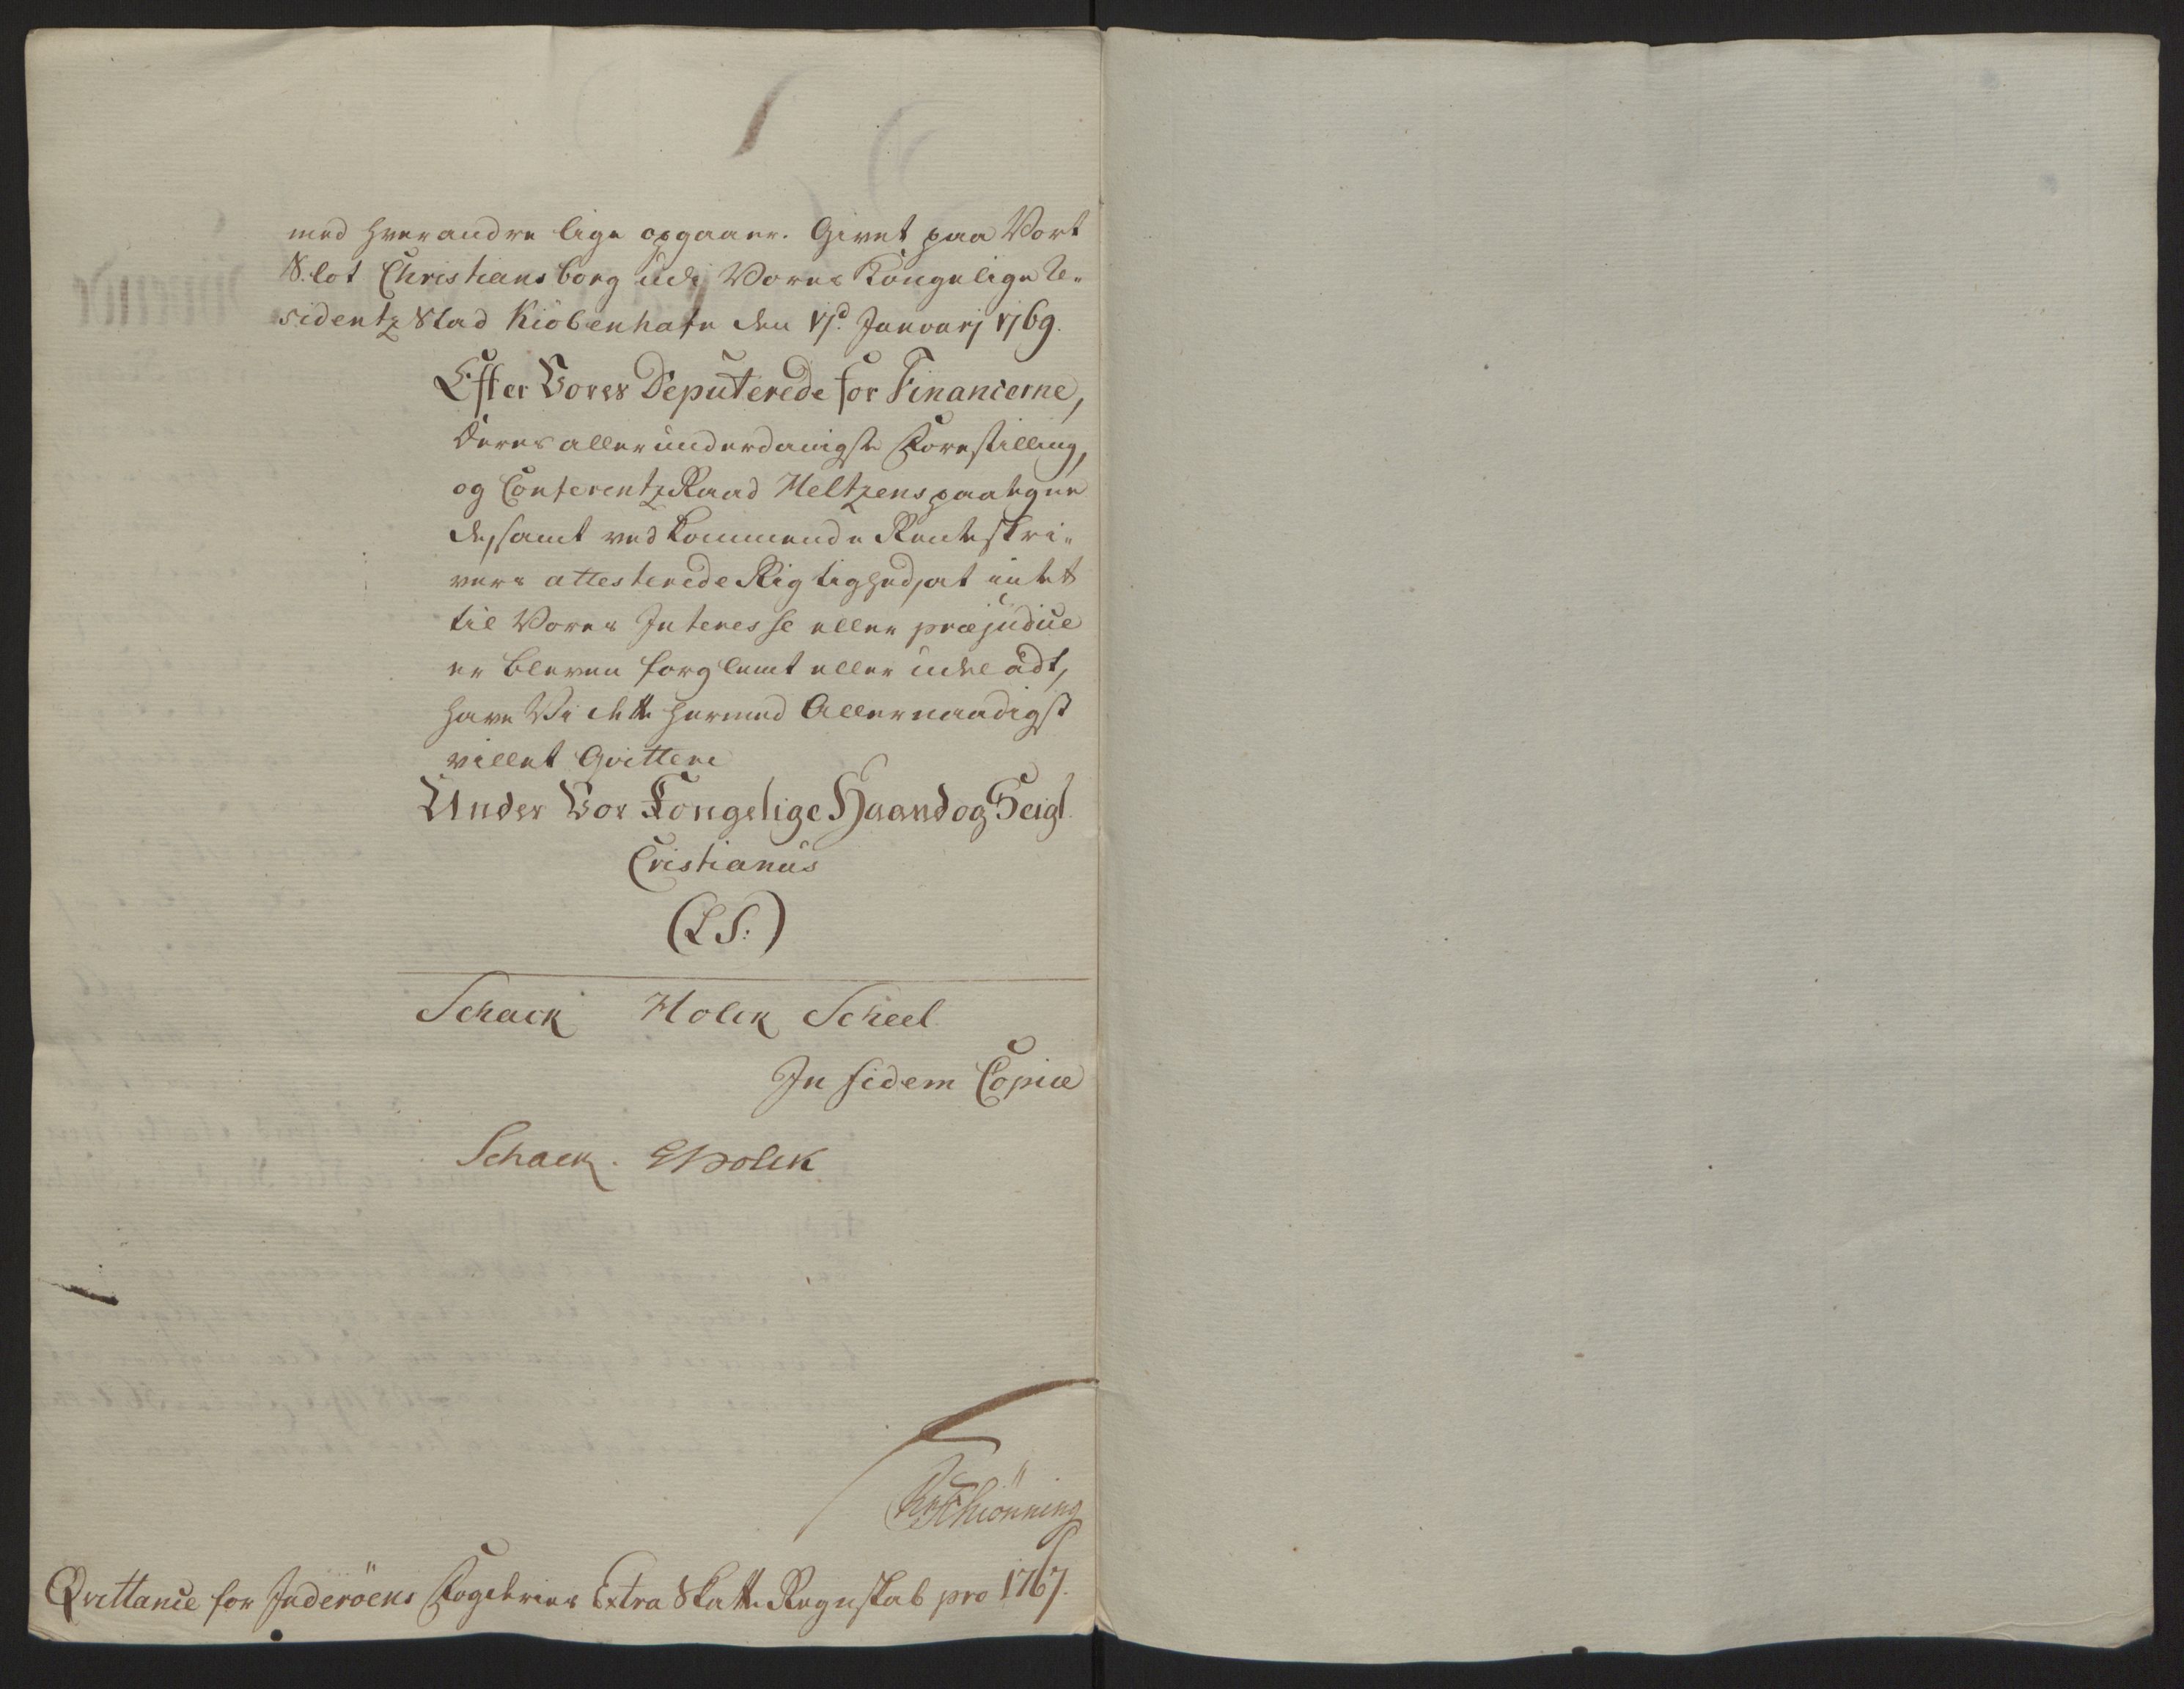 med hverandre lige opgaaer. Givet paa Vort
Slot Christiansborg udi Vores Kongelige Re-
sidentz Stad Kiöbenhafn den 17d Januarj 1769.
Efter Vores Deputerede for Financerne,
deres allerunderdanigste Forestilling,
og Conferentz Raad Heltzens paategne
de, samt vedkommende Renteskri-
vers attesterede Rigtighed, at intet
til Vores Interesse eller præjudice
er bleven forglemt eller udeladt,
have Vi dette hermed Allernaadigst
villet Qvittere
Under Vor Kongelige Haand og Seigl.
Cristianus
(L S:)
Schack Holck Scheel
In fidem Copiæ
Schack. Holck
Schiönning
Qvittance for Inderöens Fogderies Extra Skatte Regnskab pro 1767.